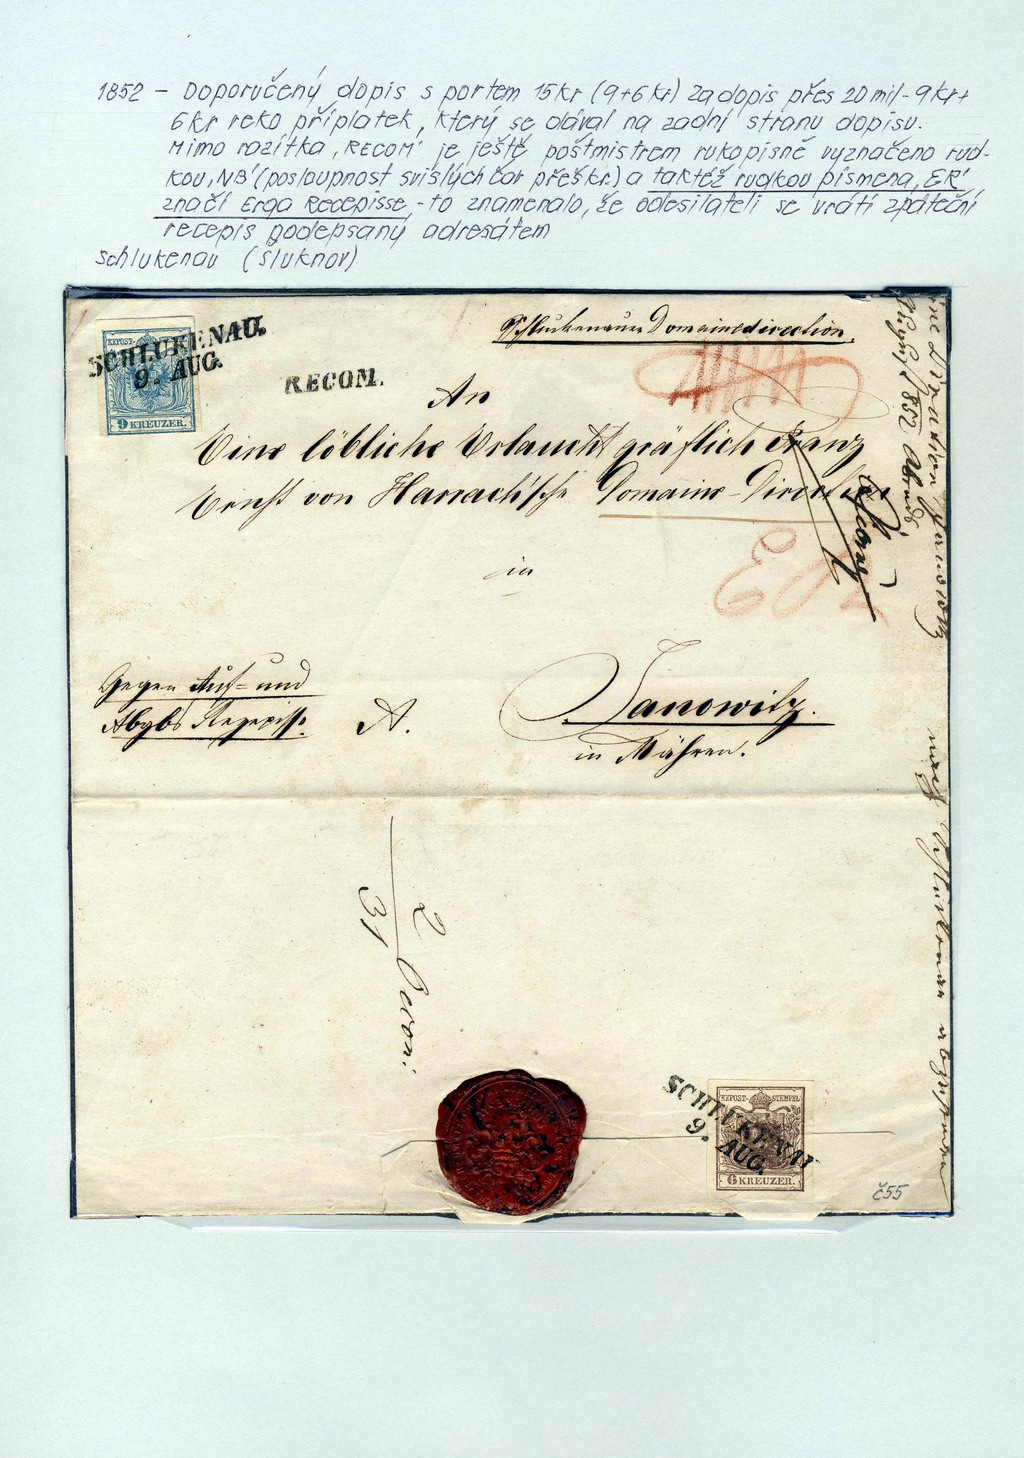 1852 - Doporučený dopis s portem 15kr (9+6 kr) za dopis přes 20 mil - 9kr+
6kr reko příplatek, který se dával na zadní stranu dopisu.
Mimo razítka ,RECOM' je ještě poštmistrem rukopisně vyznačeno rud-
kou ,NB' (posloupnost svislých čar přeškr.) a taktéž rudkou písmena ,ER'
značí Erga Recepisse, - to znamenalo, že odesilateli se vrátí zpáteční
recepis podepsaný adresátem
Schlukenau (Šluknov)
SCHLUKENAU.
9. AUG.
KEPOST-
9 KREUZER.
RECOM.
Schluckenauer Domainedirection.
An
Eine löbliche Erlaucht gräflich Franz
Ernst von Harrach'sche Domaine-Direction
in
ER
Gegen Auf- und
Abgbs Rezepisse.
A.
Janowitz.
in Mähren.
2
31
SCHLUKENAU
9. AUG.
KEPOST-STEMPEL
6 KREUZER.
č55